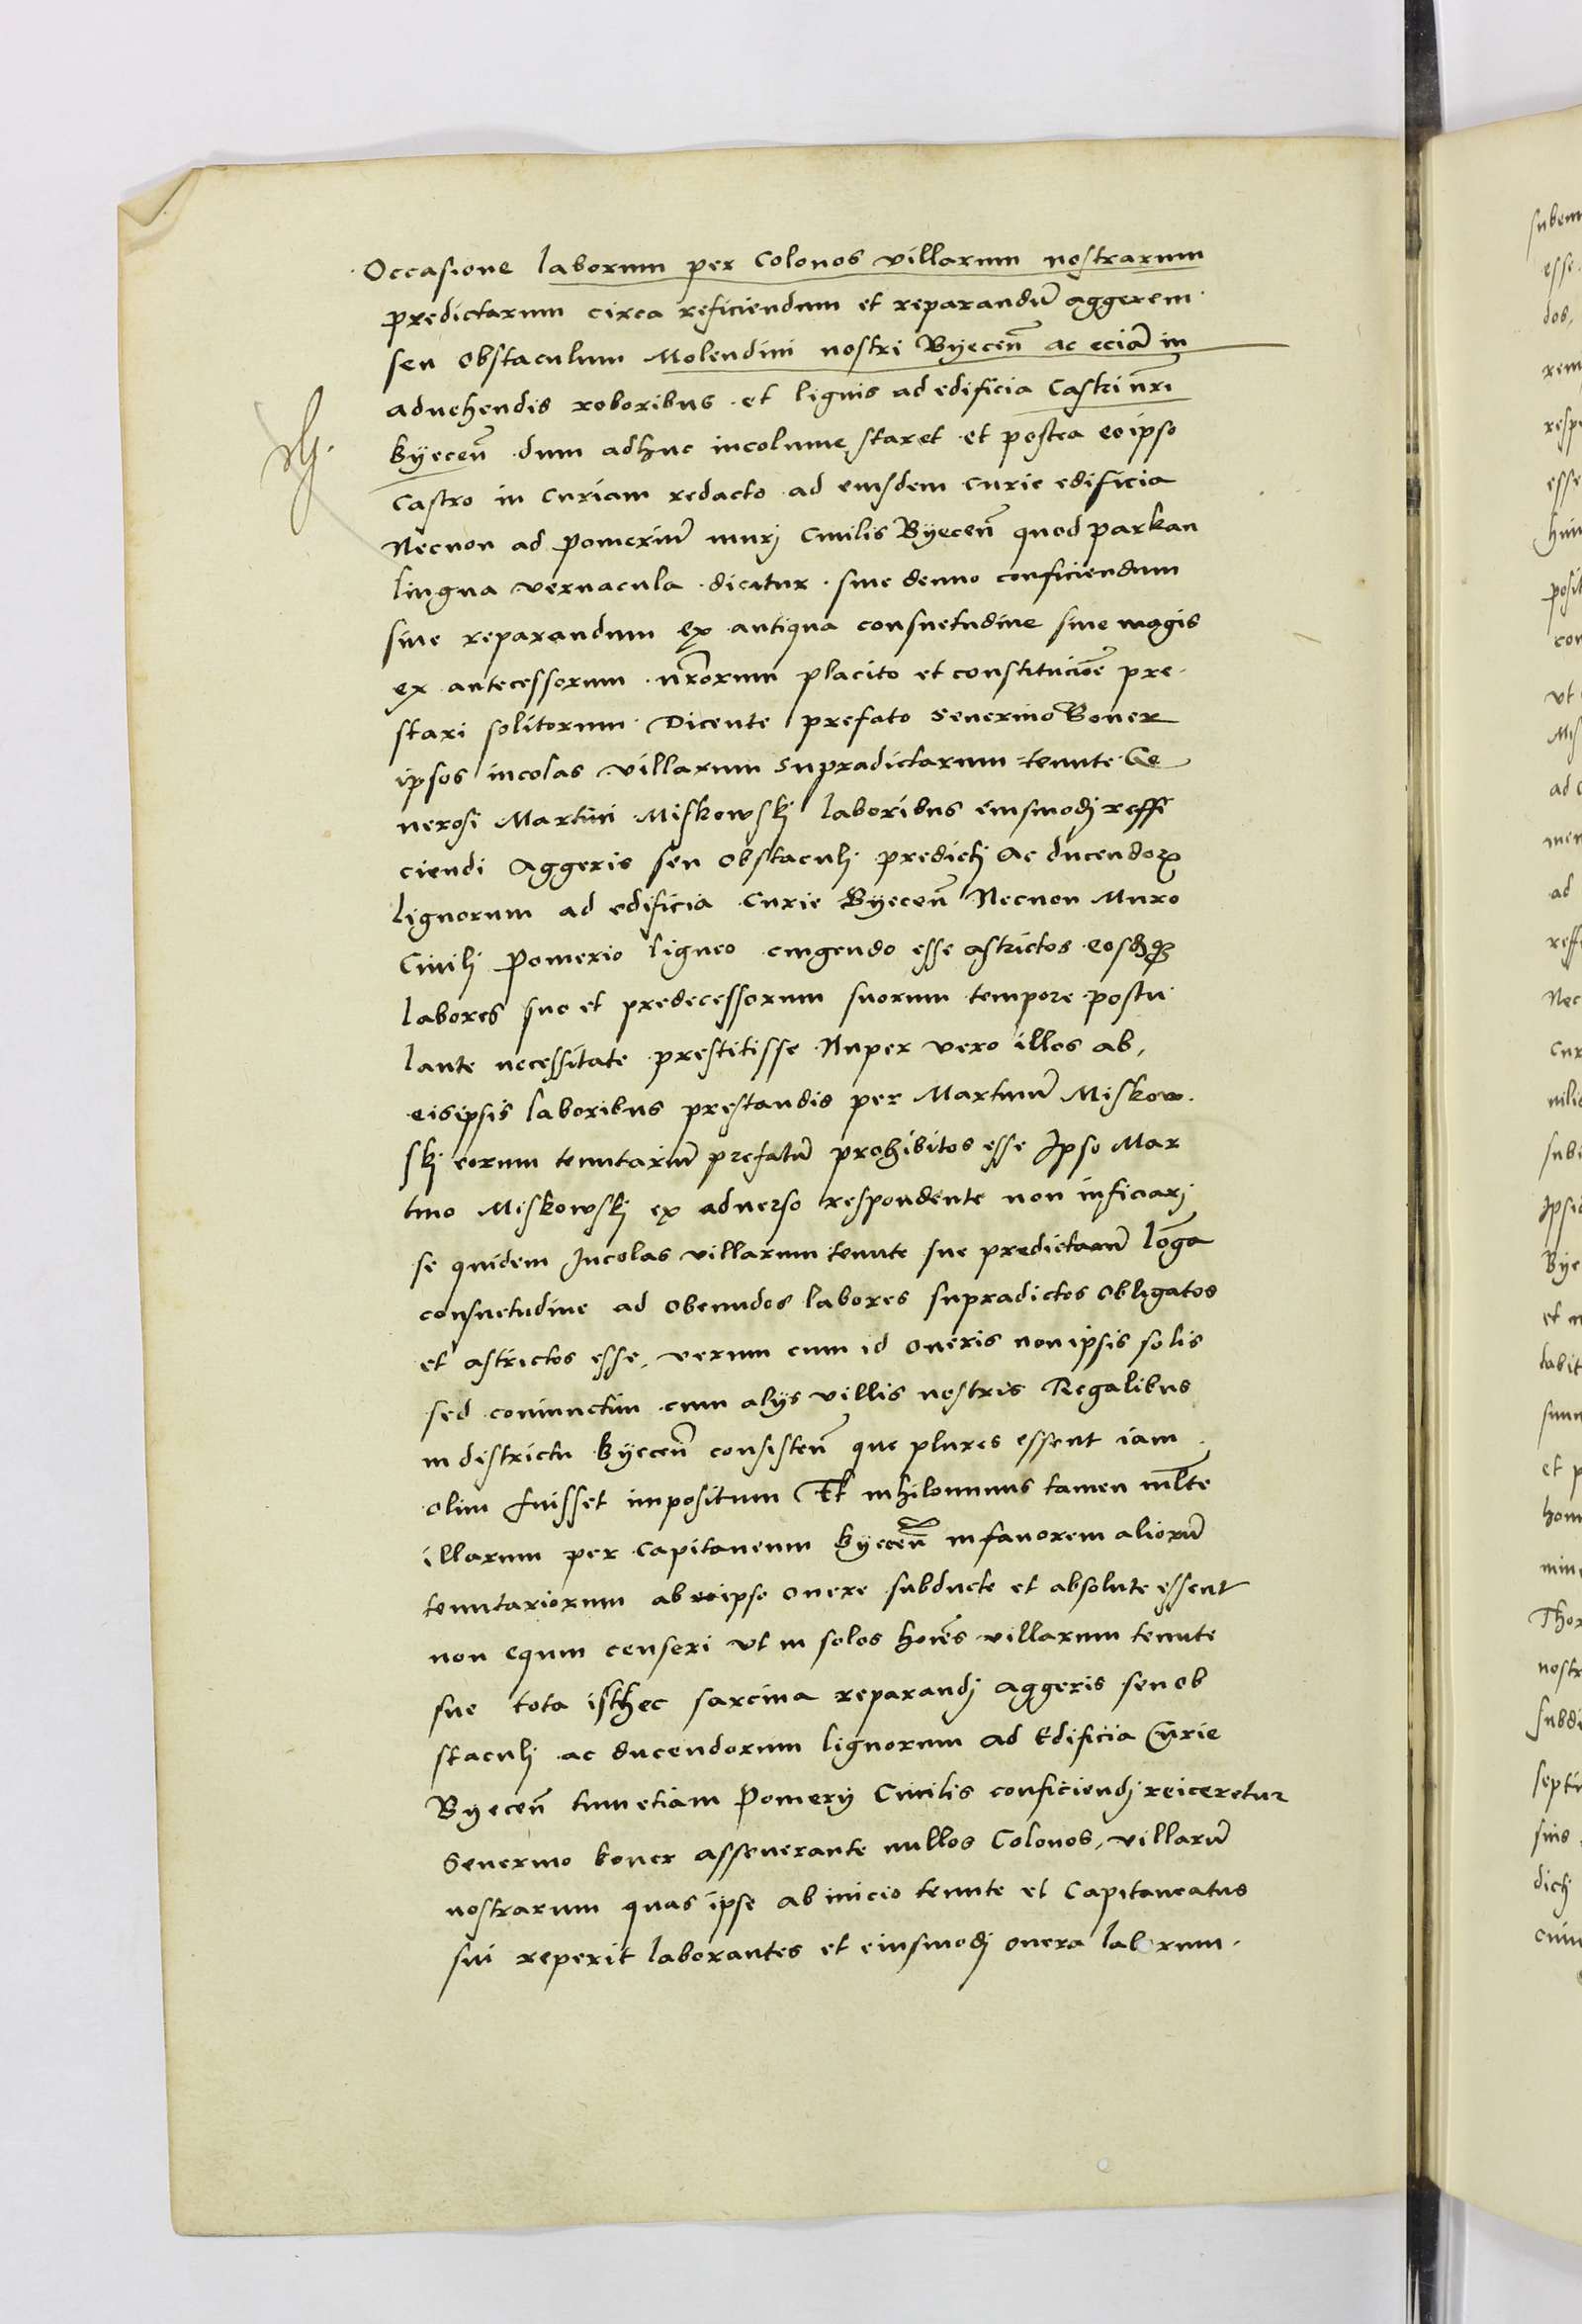 Occasione laborum per Colonos villarum nostrarum
predictarum circa reficiendum et reparandū aggerem
seu obstaculum Molendini nostri Byecen̄ ac eciā in
aduehendis roboribus et lignis ad edificia Castri nr̄i
byecen̄ dum adhuc incolume staret et postea eo ipso
Castro in Curiam redacto ad eiusdem curie edificia
Necnon ad pomeriū murj Ciuilis Byecen̄ quod parkan
lingua vernacula dicitur siue denuo conficiendum
siue reparandum ex antiqua consuetudine siue magis
ex antecessorum nr̄orum placito et constitucioē pre
stari solitorum Dicente prefato Seuerino Boner
ipsos incolas villarum supradictarum tenute Ge
nerosi Martini Miskowskj laboribus eiusmodj reffi
ciendi Aggeris seu obstaculj predictj ac ducendoꝝ
lignorum ad edificia Curie Byecen̄ Necnon Muro
Ciuilj Pomerio ligneo cingendo esse astrictos eosdꝫqꝫ
labores suo et predecessorum suorum tempore postu
lante necessitate prestitisse Nuper vero illos ab,
eisipsis laboribus prestandis per Martinū Miskow
skj eorum tenutariū prefatū prohibitos esse Ipso Mar
tino Miskowskj ex aduerso respondente non inficiarj
se quidem Incolas villarum tenute sue predictarū lōga
consuetudine ad obeundos labores supradictos obligatos
et astrictos esse, verum cum id oneris non ipsis solis
sed coniunctim cum alijs villis nostris Regalibus
in districtu byecen̄ consisten̄ que plures essent iam
olim fuisset impositum Et nihilominus tamen ml̄te
illarum per Capitaneum byecen̄ in fauorem aliorū
tenutariorum ab eoipso onere subducte et absolute essent
non equm censeri vt in solos hoīes villarum tenute
sue tota isthec sarcina reparandj aggeris seu ob
staculj ac ducendorum lignorum ad Edificia Curie
Byecen̄ tum etiam Pomerij Ciuilis conficiendj reiceretur
Seuerino boner asseuerante nullos Colonos, villarū
nostrarum quas ipse ab inicio tenute et Capitaneatus
sui reperit laborantes et eiusmodj onera laborum